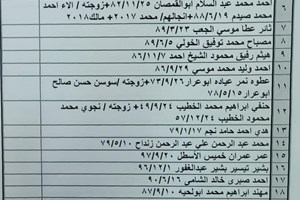 ٦ احمد محمد عبد السلام ابوالقمصان ٨٢/١١/٢٥+زوجته / الاء احمد
محمد صيدم ٨٨/٦/١٩+انجالهم/ محمد ٢٠١٧+ مالك٢٠١٨
٧ ثائر عطا موسي الجعب ٨٩/٣/٢٣
٨ مصباح محمد توفيق الخولي ٨٩/٦/٥
٩ هيثم رفيق محمود الشيخ احمد ٨٦/١١/٧
١٠ احمد وليد محمد موسي ٨٦/٩/٢٩
١١ عطوه نمر عياده ابوعرار ٧٣/٩/٢٦+زوجته/سوسن حسن صالح
ابوعرار ٧٨/٥/١٥
١٢ حنفي ابراهيم محمد الخطيب ٤٩/٩/٢٤+ زوجته / نجوي محمد
محمود الخطيب ٥٧/١٢/٢٤
١٣ هدي احمد حامد نجم ٧٩/١/٧
١٤ محمد عبد الرحمن علي عبد الرحمن زنداح ٧٩/٥/١٠
١٥ عمر عمران خميس الأسطل ٩٧/٩/٢٠
١٦ بشير تيسير بشير عبدالغفور ٩٦/١٢/١
١٧ احمد صبري خالد الشامي ٩٠/٦/١٦
١٨ مهند ابراهيم محمد ابولحيه ٨٧/٩/١٠